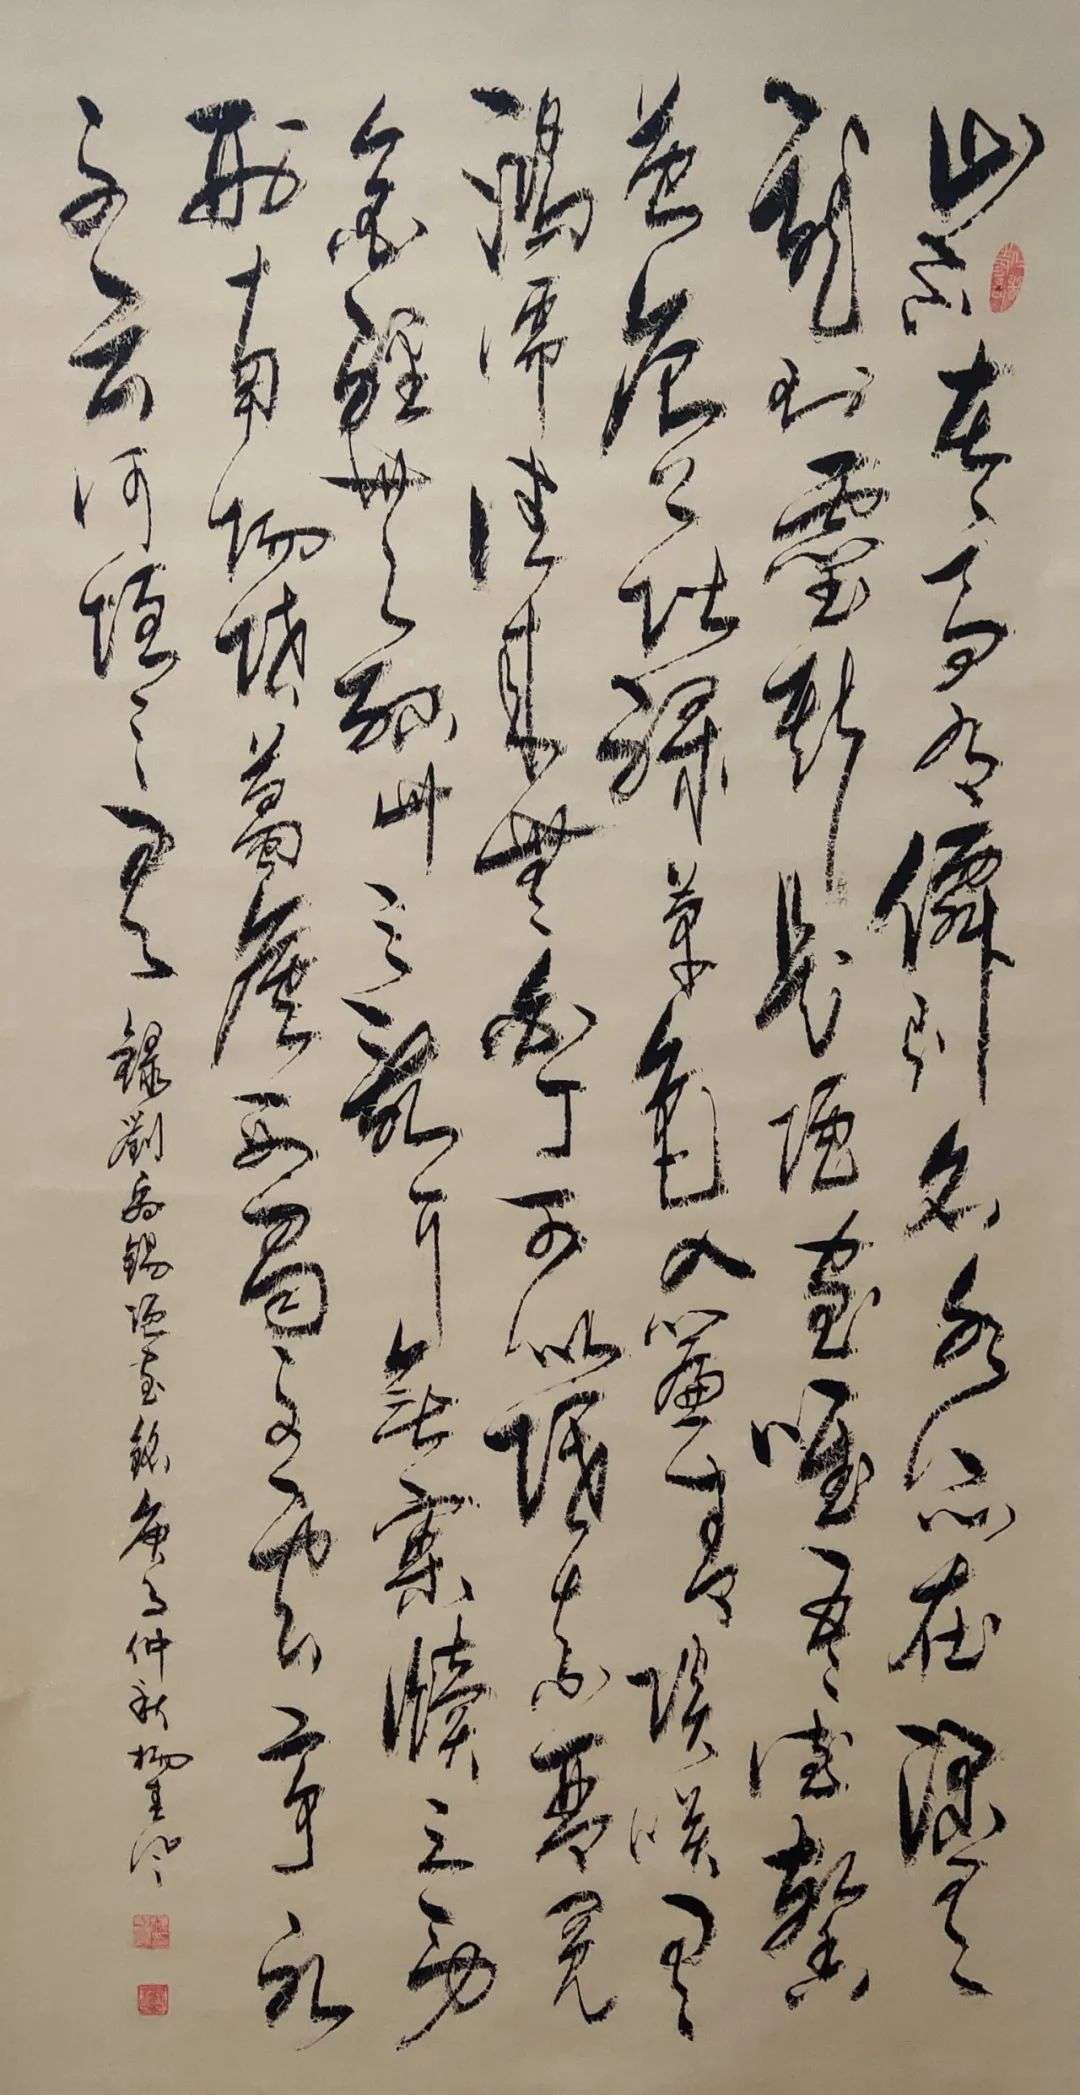 山不在高有僊則名水不在深有
龍則靈斯是陋室唯吾德馨
苔痕上階綠草色入簾青談笑有
鴻儒往來無白丁可以調素琴閱
金經無絲竹之亂耳無案牘之勞
形南陽諸葛廬西蜀子雲亭孔
子云何陋之有錄劉禹錫陋室銘庚子仲秋